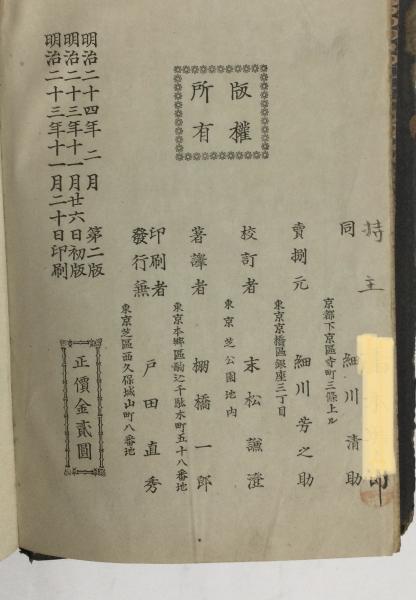 版權
所有
明治二十三年十一月二十日印刷
明治二十三年十一月廿六日初版
明治二十四年 二月 第二版
正價金貳圓
東京芝區西久保城山町八番地
印刷者
發行兼
戸田直秀
東京本鄕區駒込千駄木町五十八番地
著譯者 棚橋一郎
東京芝公園地内
校訂者 末松謙澄
東京京橋區銀座三丁目
賣捌元 細川芳之助
京都下京區寺町三條上ル
同 細川清助
持主 郎